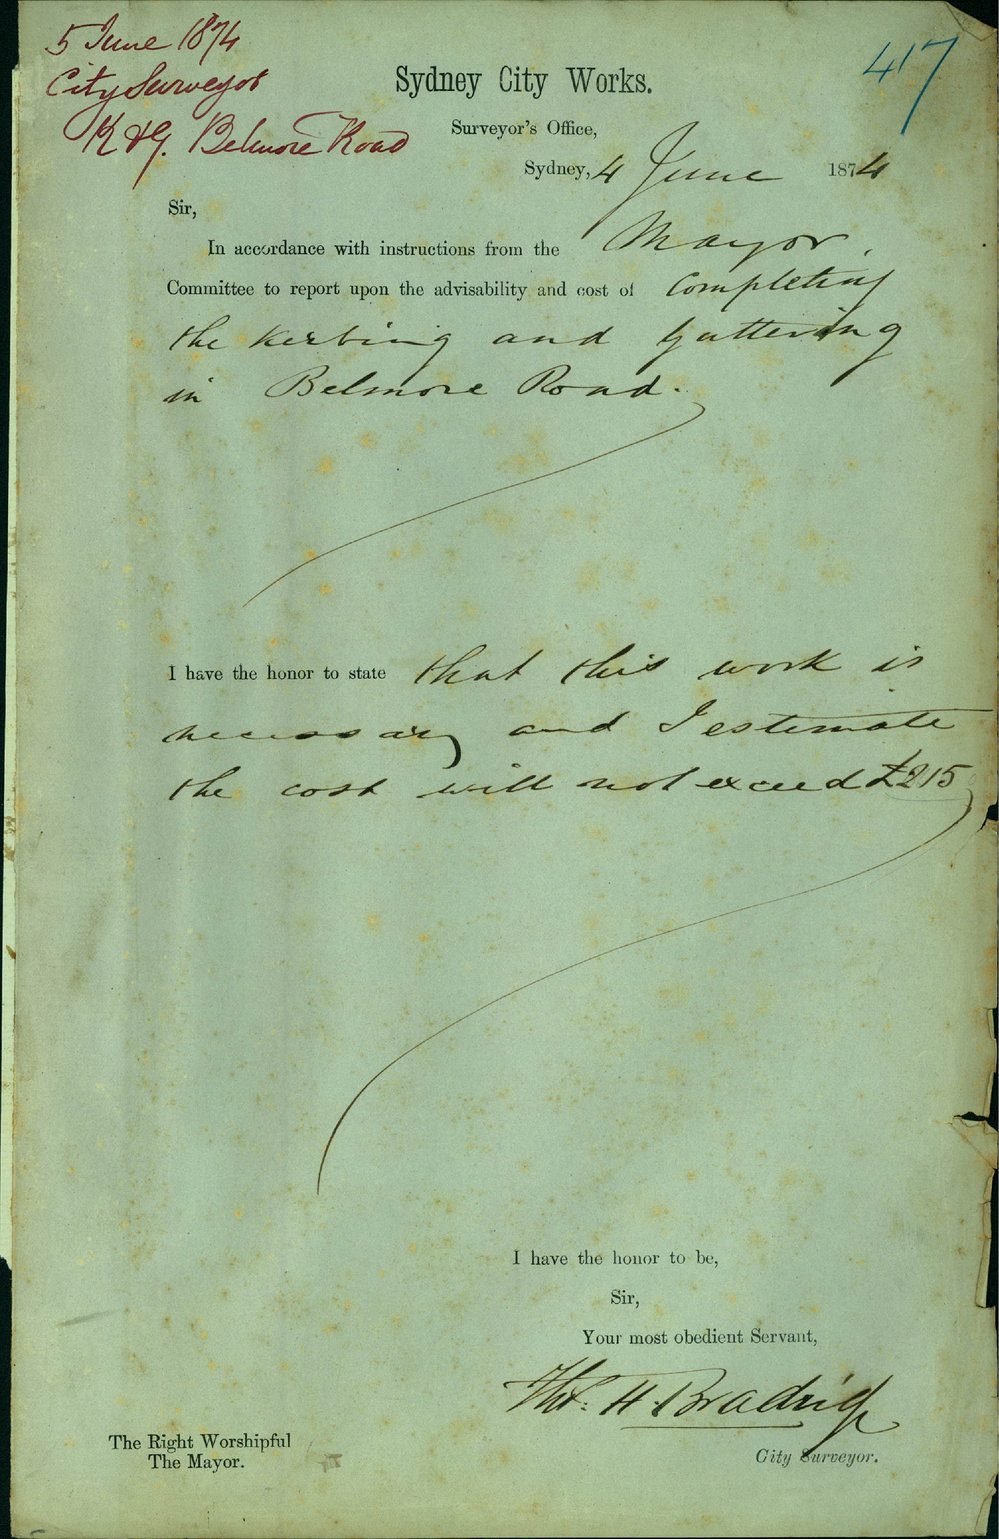 5 June 1874
City Surveyor
K & G. Belmore Road
417
Sydney City Works.
Surveyor's Office,
Sydney, 4 June 1874
Sir,
In accordance with instructions from the Mayor,
Committee to report upon the advisability and cost of completing
the kerbing and guttering
in Belmore Road.
I have the honor to state that this work is
necessary and I estimate
the cost will not exceed £215
I have the honor to be,
Sir,
Your most obedient Servant,
Thos. H. Bradridge
City Surveyor.
The Right Worshipful
The Mayor.